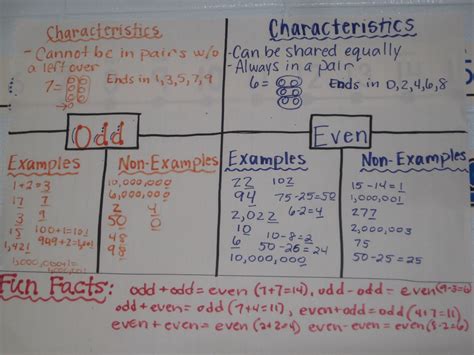 Characteristics
- Cannot be in pairs w/o
a left over
7= Ends in 1,3,5,7,9
Characteristics
- Can be shared equally
- Always in a pair
6= Ends in 0,2,4,6,8
Odd
Even
Examples
1+2=3
17 7
3 9
15 100+1=101
1,421
Non-Examples
10,000,000
6,000,000
2 4
50 0
48
98
Examples
22 102
94 75-25=50
2,022 6-2=4
10
6 10-8=2
50-26=24
10,000,000
Non-Examples
15-14=1
1,000,001
277
2,000,003
75
50-25=25
Fun Facts:
odd+odd=even (7+7=14), odd-odd=even (9-3=6)
odd+even=odd (7+4=11), even+odd=odd (4+7=11)
even+even=even (2+2=4) even-even=even (8-2=6)